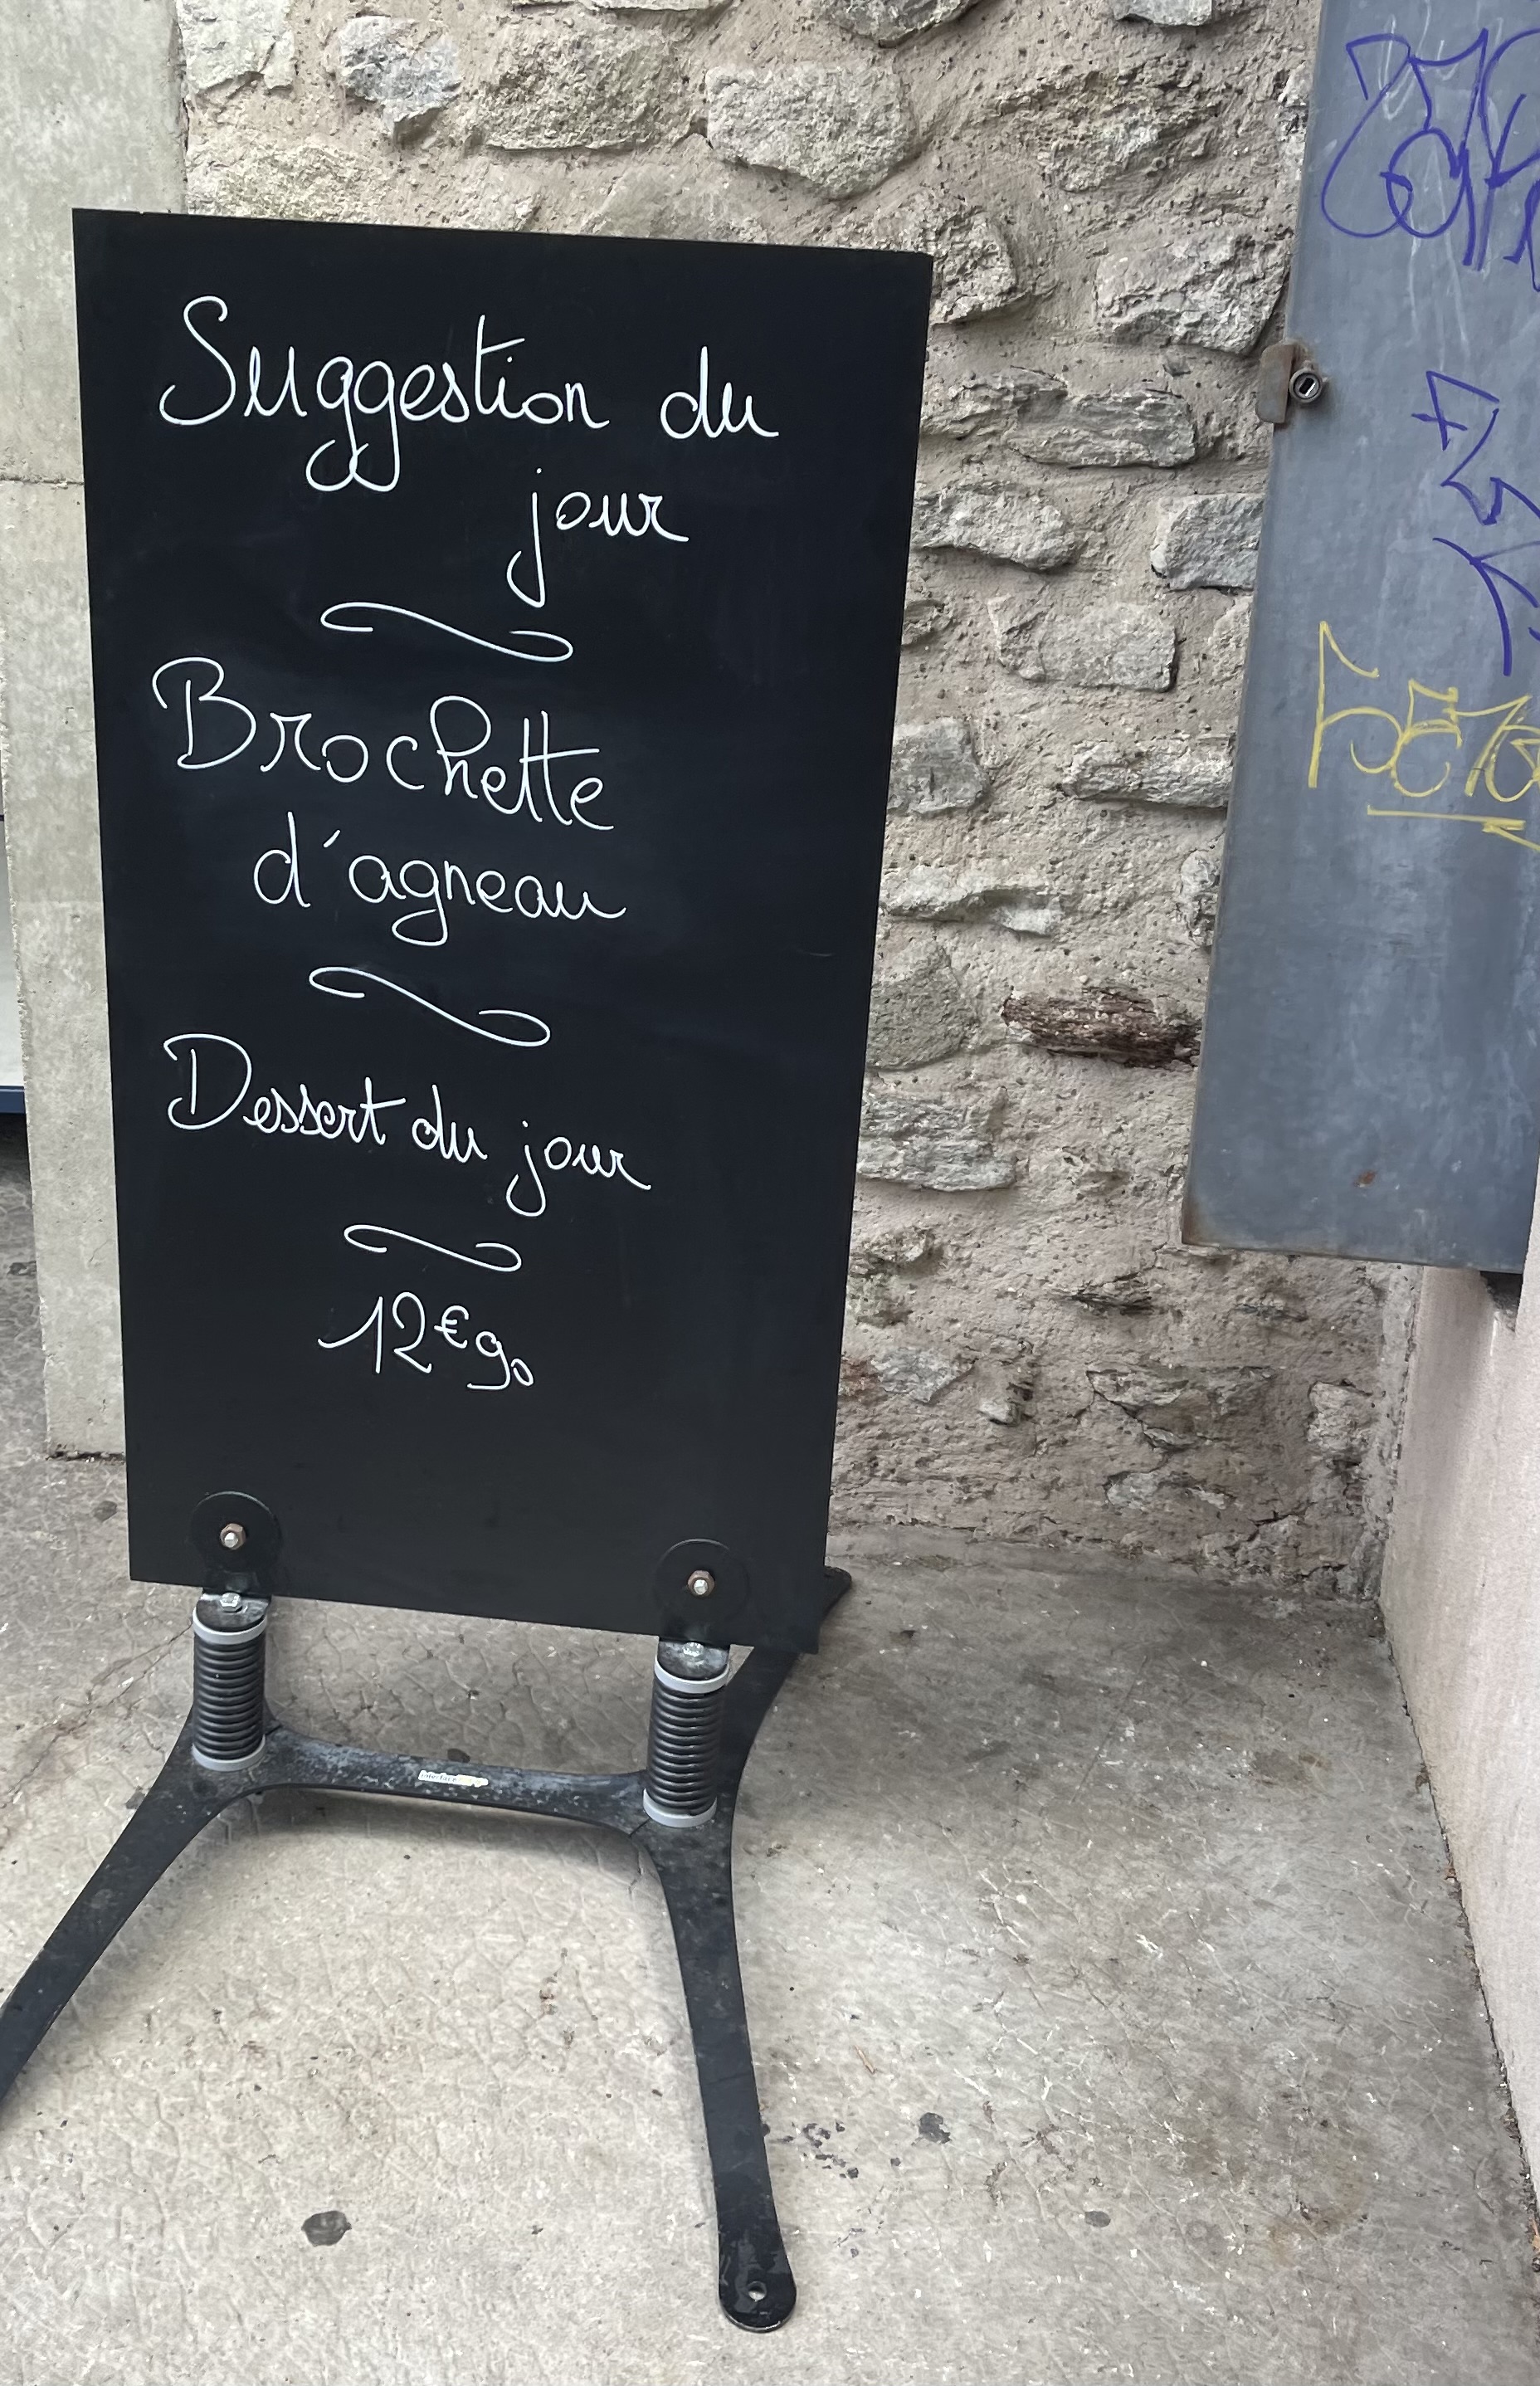 Suggestion du
jour
Brochette
d'agneau
Dessert du jour
12€90